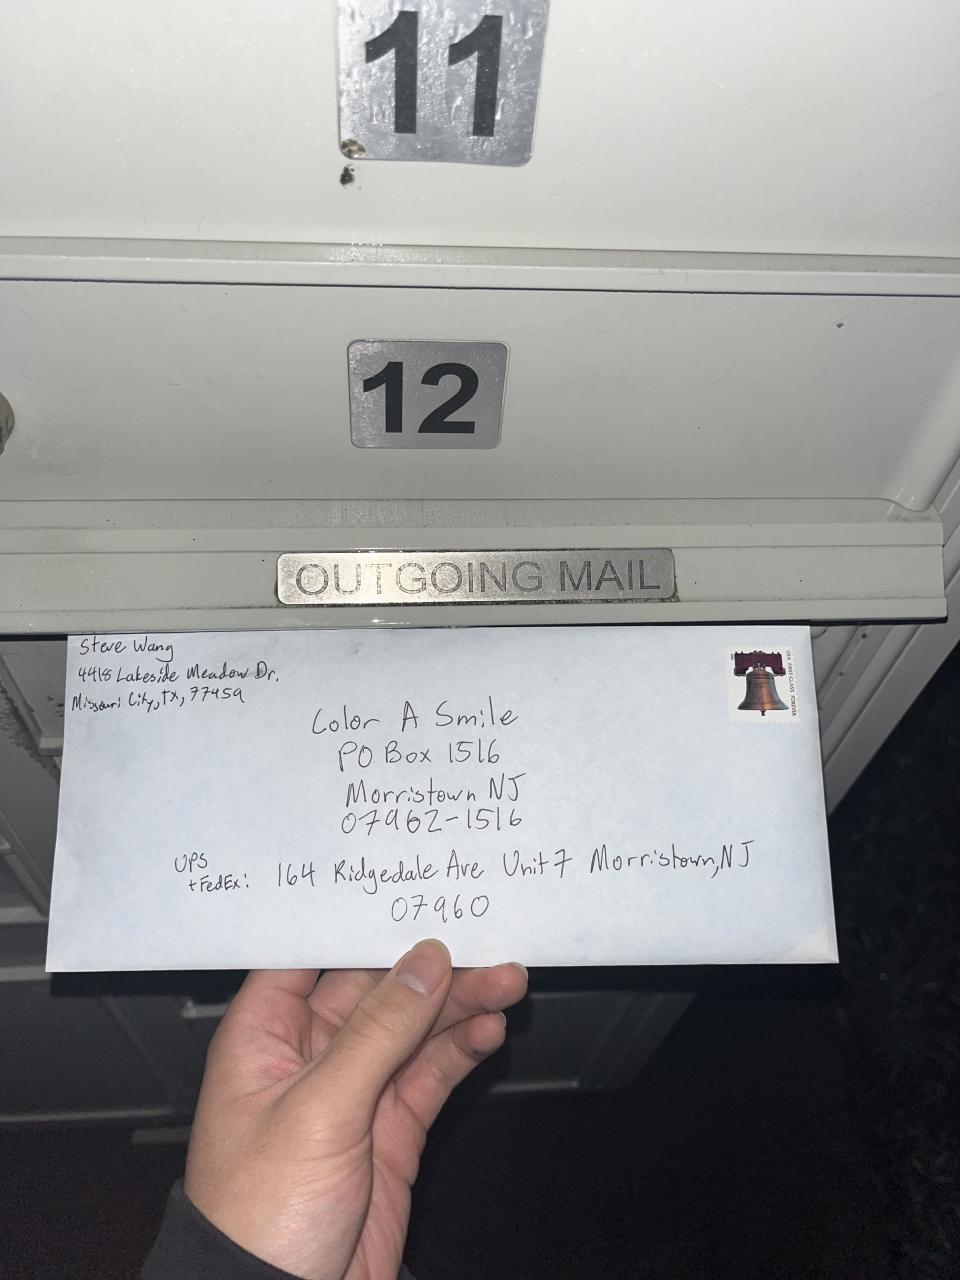 11
12
OUTGOING MAIL
Steve Wang
4418 Lakeside Meadow Dr.
Missouri City, TX, 77459
USA FIRST-CLASS FOREVER
Color A Smile
PO Box 1516
Morristown NJ
07962-1516
UPS
+FedEx: 164 Ridgedale Ave Unit 7 Morristown, NJ
07960